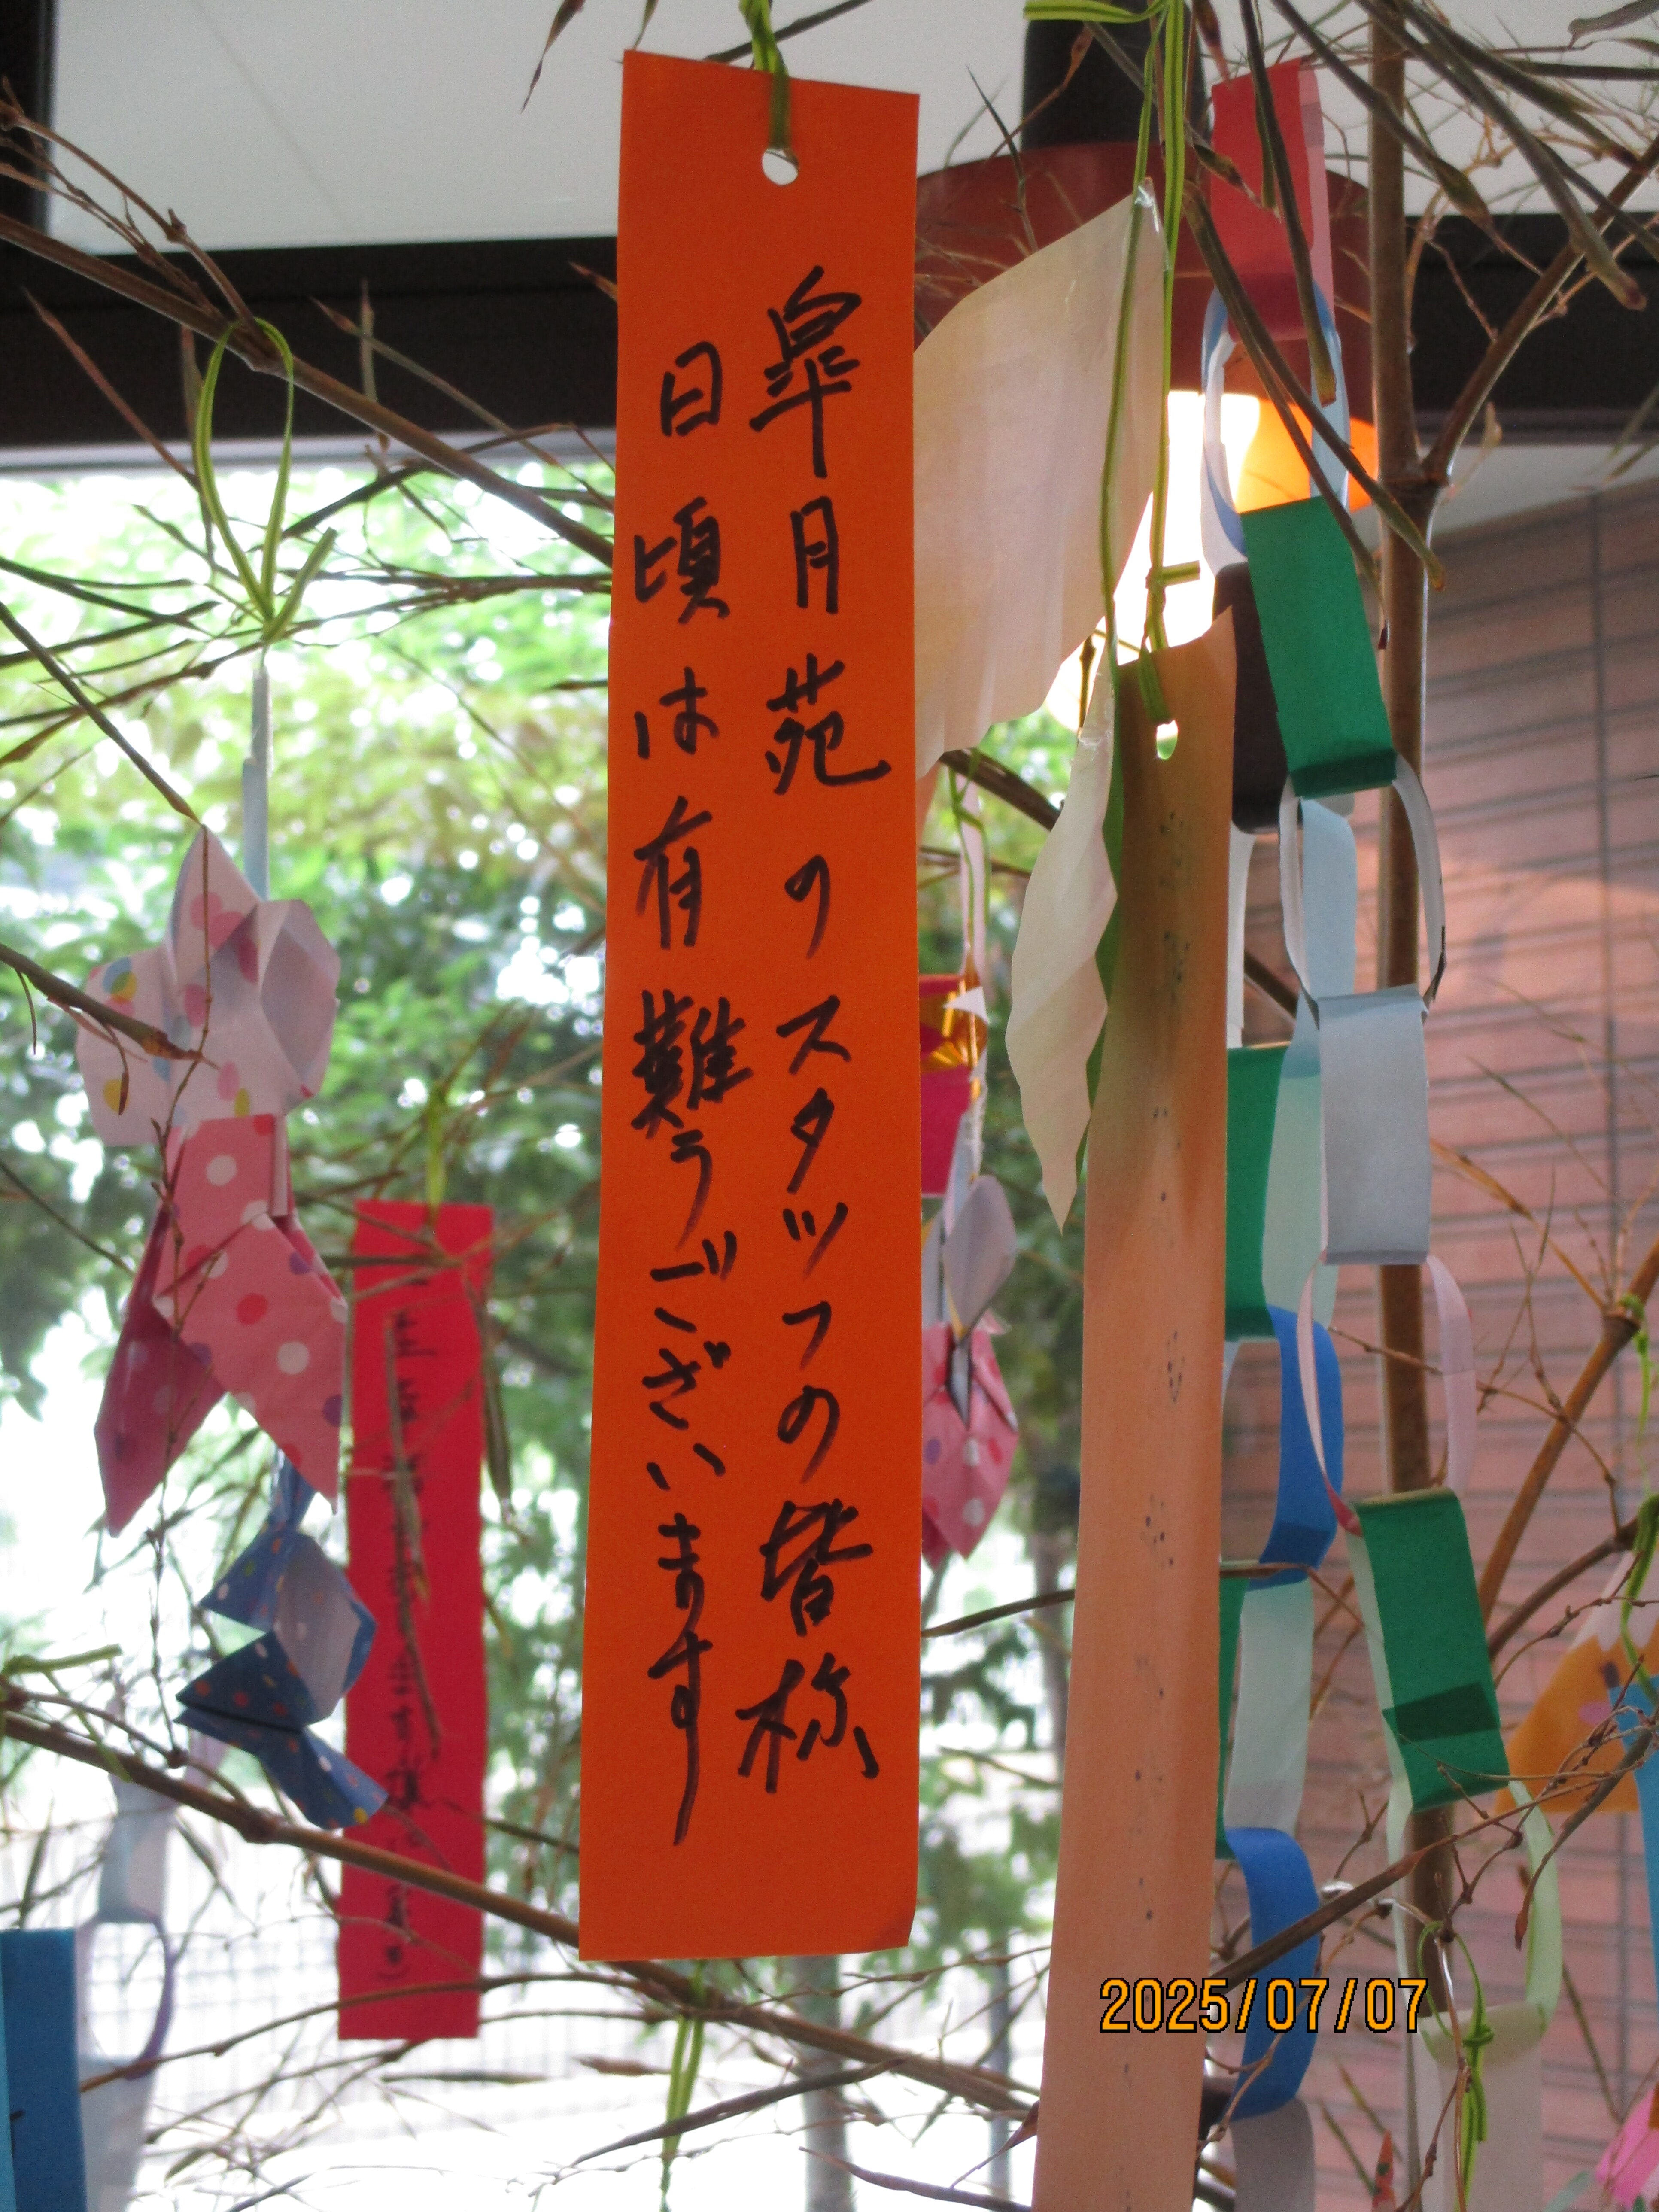 皐月苑のスタッフの皆称
日頃は有難うございます
2025/07/07